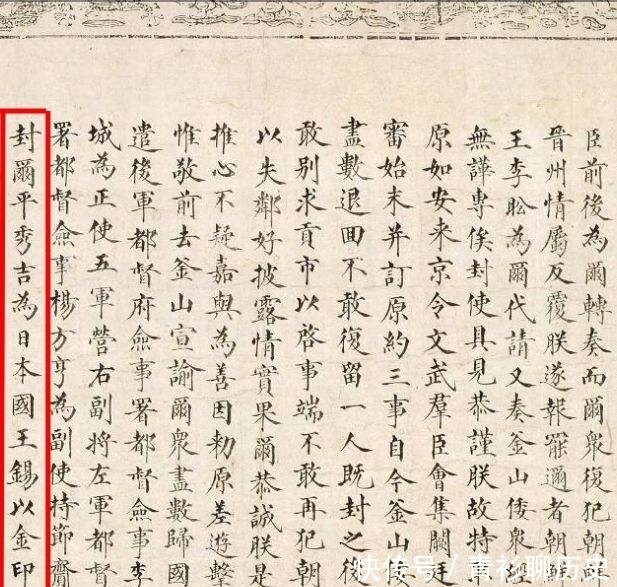 臣前後為爾轉奏而爾衆復犯朝
晉州情屬反覆朕遂報罷邇者朝
王李昖為爾代請又奏釜山倭衆
無譁專俟封使具見恭謹朕故特
原如安来京令文武羣臣會集闕
審始末并訂原約三事自今釜山
盡數退回不敢復留一人既封之後
敢别求貢市以啓事端不敢再犯朝
以失鄰好披露情實果爾恭誠朕是
推心不疑嘉與為善因勑原差遊擊
惟敬前去釜山宣諭爾衆盡數歸國
遣後軍都督府僉事署都督僉事李
城為正使五軍營右副将左軍都督
署都督僉事楊方亨為副使持節齎
封爾平秀吉為日本國王錫以金印
快传号/青衫聊历史